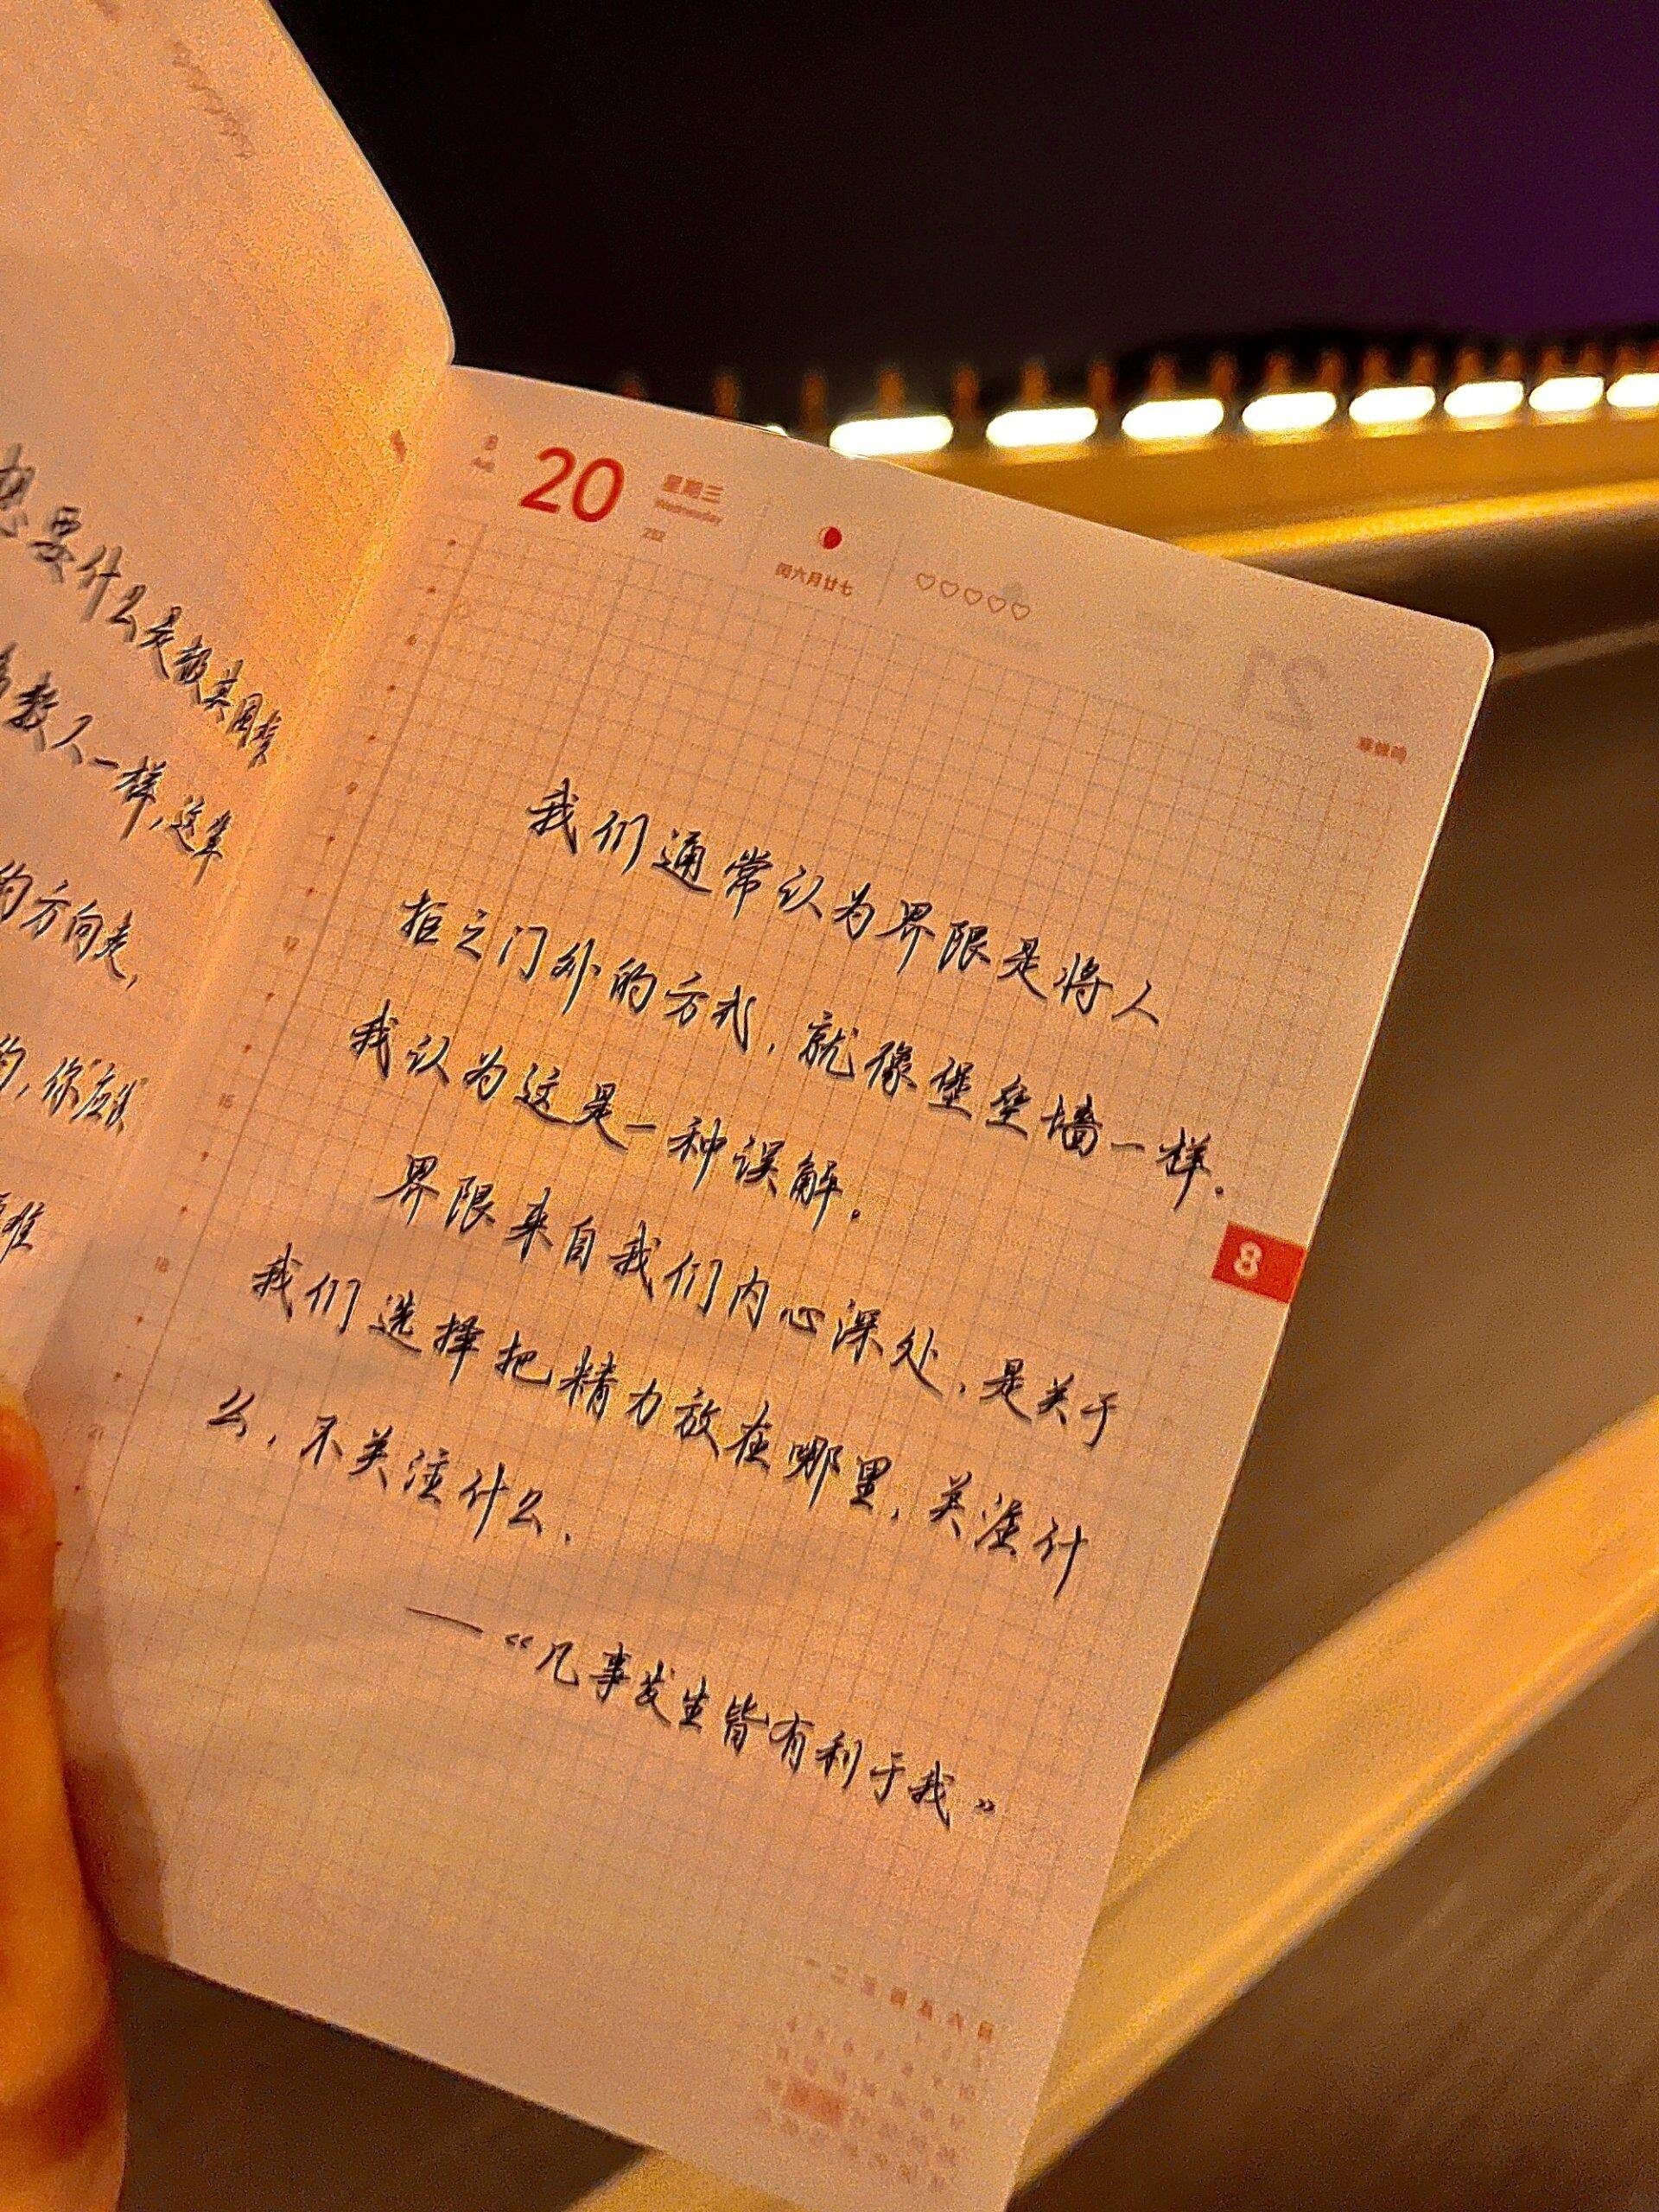 想要什么是极其困难
多数人一样,这辈
的方向走,
的,你应该
8
Aug
20
星期三
Wednesday
232
闰六月廿七
♡♡♡♡♡
寒蝉鸣
我们通常认为界限是将人
拒之门外的方式,就像堡垒墙一样.
我认为这是一种误解.
界限来自我们内心深处,是关于
我们选择把精力放在哪里,关注什
么,不关注什么.
—《凡事发生皆有利于我》
6
9
12
15
18
21
8
一 二 三 四 五 六 日